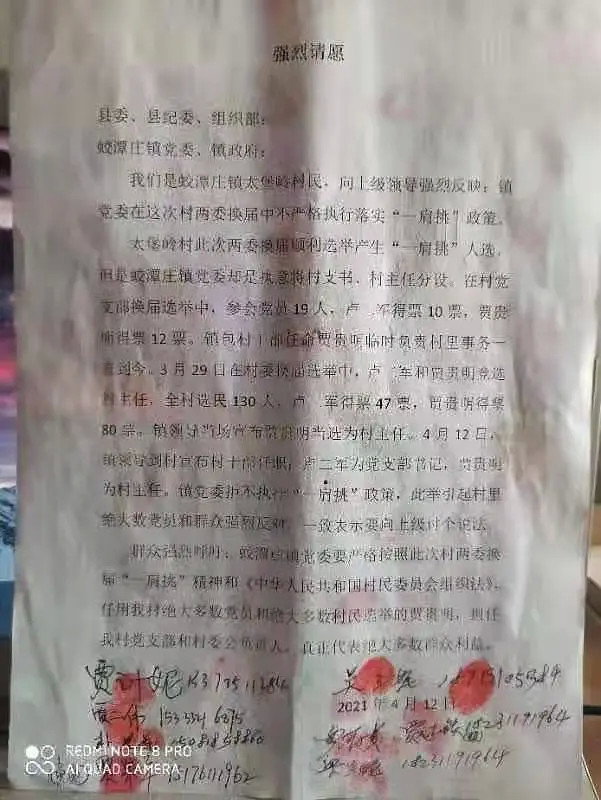 强烈请愿
县委、县纪委、组织部:
蛟潭庄镇党委、镇政府:
我们是蛟潭庄镇太堡岭村民,向上级领导强烈反映:镇
党委在这次村两委换届中不严格执行落实“一肩挑”政策。
太堡岭村此次两委换届顺利选举产生“一肩挑”人选。
但是蛟潭庄镇党委却是执意将村支书、村主任分设。在村党
支部换届选举中,参会党员19人,卢二军得票10票,贾贵
明得票12票。镇包村干部任命贾贵明临时负责村里事务一
直到今。3月29日在村委换届选举中,卢二军和贾贵明竞选
村主任,全村选民130人,卢二军得票47票,贾贵明得票
80票。镇领导当场宣布贾贵明当选为村主任。4月12日,
镇领导到村宣布村干部任职:卢二军为党支部书记,贾贵明
为村主任。镇党委拒不执行“一肩挑”政策,此举引起村里
绝大多数党员和群众强烈反对,一致表示要向上级讨个说法。
群众强烈呼吁:蛟潭庄镇党委要严格按照此次村两委换
届“一肩挑”精神和《中华人民共和国村民委员会组织法》,
任用我村绝大多数党员和绝大多数村民选举的贾贵明,担任
我村党支部和村委会负责人,真正代表绝大多数群众利益。
2021年4月12日
18231191964
18231191964
15176111962
REDMI NOTE 8 PRO
AI QUAD CAMERA